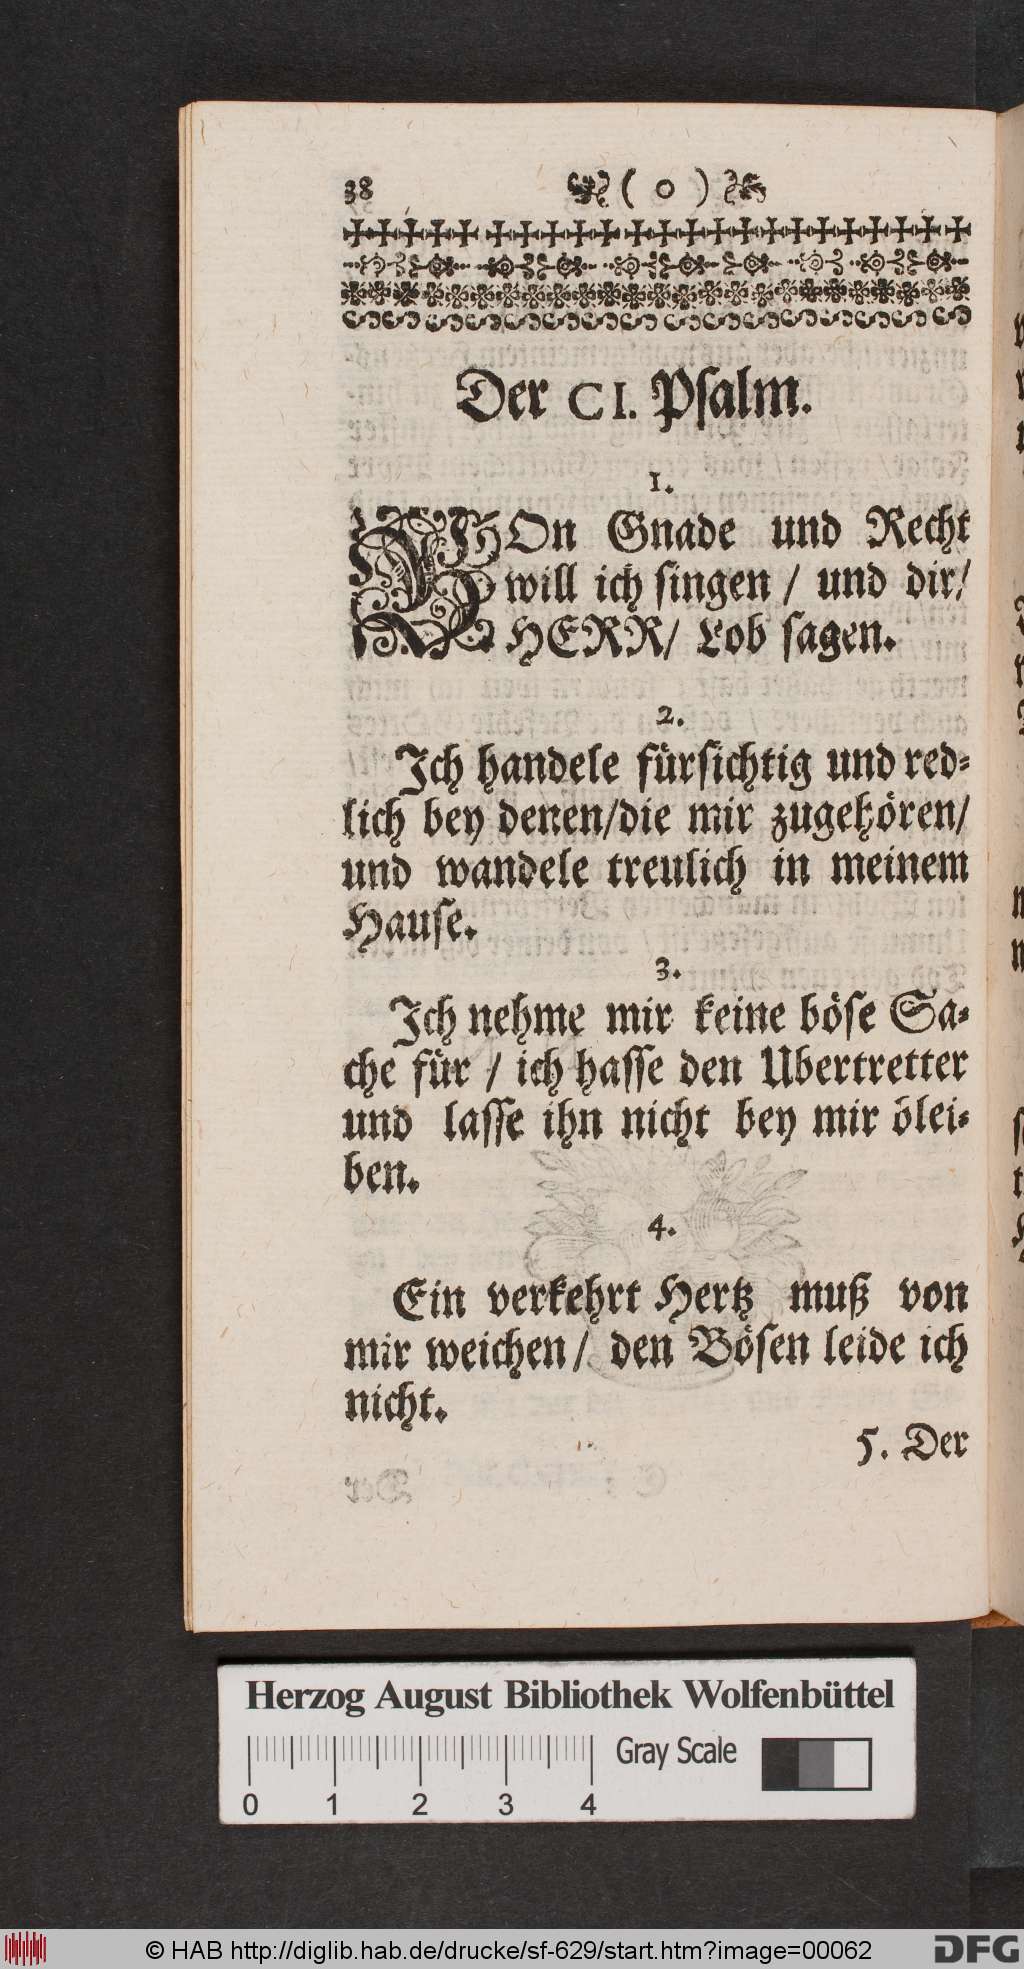 38 ( o )
Der CI. Psalm.
1.
VOn Gnade und Recht
will ich singen / und dir /
HERR / Lob sagen.
2.
Ich handele fürsichtig und red-
lich bey denen / die mir zugehören /
und wandele treulich in meinem
Hause.
3.
Ich nehme mir keine böse Sa-
che für / ich hasse den Ubertretter
und lasse ihn nicht bey mir ölei-
ben.
4.
Ein verkehrt Hertz muß von
mir weichen / den Bösen leide ich
nicht.
5. Der
Herzog August Bibliothek Wolfenbüttel
Gray Scale
0 1 2 3 4
© HAB http://diglib.hab.de/drucke/sf-629/start.htm?image=00062
DFG